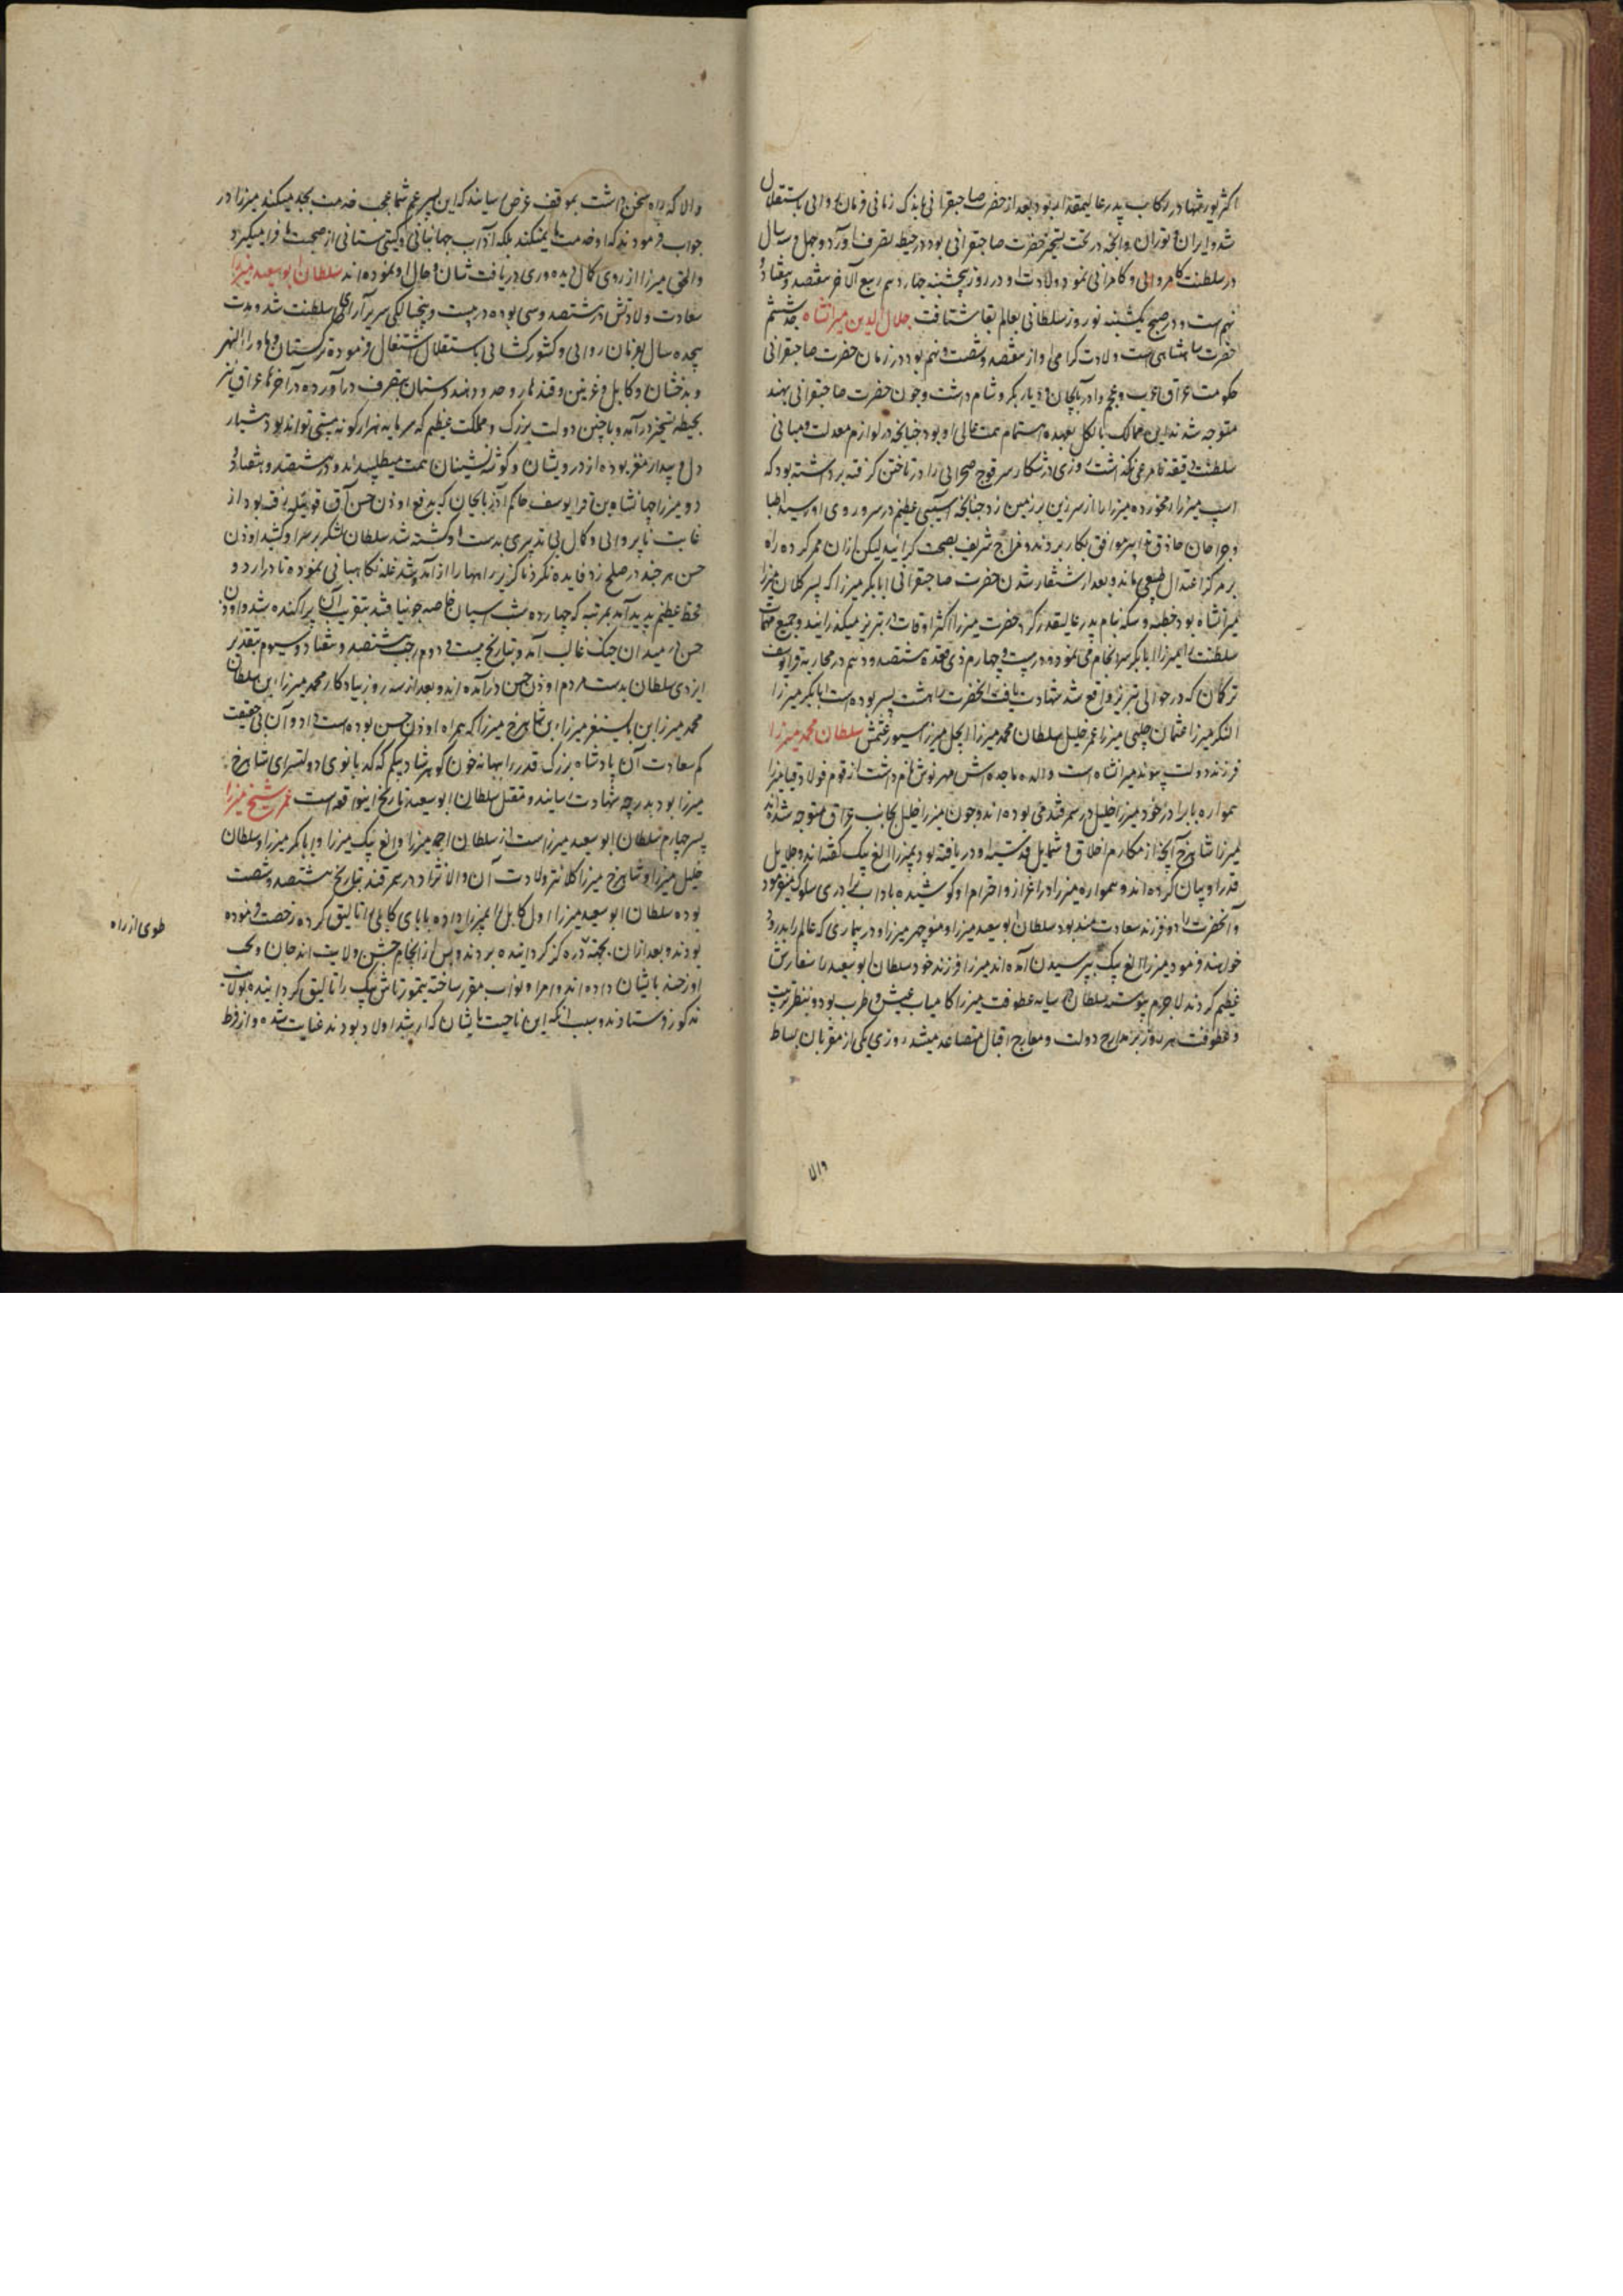 اکثر یورشها در رکاب پدر عالیمقدار بود بعد از حضرت صاحبقرانی باندک زمانی فرمان روائی باستقلال
شد و ایران و توران و آنچه در تحت تسخیر حضرت صاحبقرانی بود در حیطه تصرف آورد و چهل و سه سال
در سلطنت کامروائی و کامرانی نمود ولادت او در روز پنجشنبه چهاردهم ربیع الآخر هفتصد و هفتاد و
نهم است و در صبح یکشنبه نوروز سلطانی بعالم بقا شتافت جلال الدین میرانشاه جد ششم
حضرت شاهنشاهی است ولادت گرامی او از هفتصد و شصت و نهم بود در زمان حضرت صاحبقرانی
حکومت عراق عرب و عجم و آذربایجان و دیار بکر و شام داشت و چون حضرت صاحبقرانی بهند
متوجه شدند این ممالک بالکل بعهده اهتمام همت عالی او بود چنانچه در لوازم معدلت و مبانی
سلطنت دقیقه نامرعی نگذاشت روزی در شکار سر قوچ صحرائی را در تاختن گرفته برداشته بود که
اسپ میرزا رم خورده میرزا را از سر زین بر زمین زد چنانچه آسیبی عظیم در سر و روی او رسید اطبا
و جراحان حاذق تدابیر موافق بکار بردند و مزاج شریف بصحت گرائید لیکن ازان ممر گرد راه
بر مرکز اعتدال طبیعی ماند و بعد از شنقار شدن حضرت صاحبقرانی ابابکر میرزا که پسر کلان میرزا
میرانشاه بود خطبه و سکه بنام پدر عالیقدر کرد حضرت میرزا اکثر اوقات در تبریز میگذرانیدند و جمیع مهمات
سلطنت را میرزا ابابکر سرانجام می نمود در بیست و چهارم ذی قعده هشتصد و دهم در محاربه قرایوسف
ترکمان که در حوالی تبریز واقع شد شهادت یافت آنحضرت را هشت پسر بوده است ابابکر میرزا
النکر میرزا عثمان چلپی میرزا عمر خلیل سلطان محمد میرزا ایجل میرزا سیورغتمش سلطان محمد میرزا
فرزند دولت پیوند میرانشاه است والده ماجده اش مهرنوش نام داشت از قوم فولاد قیا میرزا
همواره با برادر خود میرزا خلیل در سمرقند می بوده اند و چون میرزا خلیل بجانب عراق متوجه شده اند
میرزا شاهرخ آنچه از مکارم اخلاق و شمایل قدسیه او دریافته بود بمیرزا الغ بیک گفته اند و جلایل
قدر او بیان کرده اند و همواره میرزا در اعزاز و احترام او کوشیده باداب برادری سلوک مینمود
و آنحضرت را دو فرزند سعادتمند بود سلطان ابوسعید میرزا و منوچهر میرزا و در بیماری که عالم را پدرود
خواهند فرمود میرزا الغ بیک بپرسیدن آمده اند میرزا فرزند خود سلطان ابوسعید را سفارش
عظیم کردند لاجرم پیوسته سلطان در سایه عطوفت میرزا کامیاب عیش و طرب بود و بنظر تربیت
و عطوفت هر روز بر مدارج دولت و معارج اقبال متصاعد میشد روزی یکی از مقربان بساط
والا
والا که راه سخن داشت بموقف عرض رسانید که این پسر عم شما عجب خدمت بجد میکند میرزا در
جواب فرمودند که او خدمت ما نمیکند بلکه آداب جهانبانی و گیتی ستانی از صحبت ما فرا میگیرد
و الحق میرزا از روی کمال دیده وری دریافت شان و حال او نموده اند سلطان ابوسعید میرزا
سعادت ولادتش در هشتصد و سی بوده در بیست و پنجسالگی سریرآرای سلطنت شد و مدت
هجده سال بفرمان روائی و کشورکشائی باستقلال اشتغال فرموده ترکستان و ماوراالنهر
و بدخشان و کابل و غزنین و قندهار و حدود هندوستان بتصرف درآورده در آخرها عراق نیز
بحیطه تسخیر درآمد و با چنین دولت بزرگ و مملکت عظیم که سرمایه هزار گونه مستی تواند بود هشیار
دل و بیدار مغز بوده از درویشان و گوشه نشینان همت میطلبیدند و در هشتصد و هفتاد و
دو میرزا جهانشاه بن قرایوسف حاکم آذربایجان که بدفع اوذن حسن آق قوینلو رفته بود از
غایت ناپروائی و کمال بی تدبیری بدست او کشته شد سلطان لشکر بر سر او کشید اوذن
حسن هر چند در صلح زد فایده نکرد ناگزیر راهها را از آمدشد غله نگاهبانی نموده تا در اردو
قحط عظیم پدید آمد بمرتبه که چهارده شب اسپان خاصه جو نیافتند بتقریب آن پراکنده شدند اوذن
حسن در میدان جنگ غالب آمد و بتاریخ بیست و دوم رجب هشتصد و هفتاد و سیوم بتقدیر
ایزدی سلطان بدست مردم اوذن حسن درآمده اند و بعد از سه روز بیادکار محمد میرزا بن سلطان
محمد میرزا بن بایسنغر میرزا بن شاهرخ میرزا که همراه اوذن حسن بوده است داد و آن بی حقیقت
کم سعادت آن پادشاه بزرگ قدر را ببهانه خون گوهرشاد بیگم که کدبانوی دولتسرای شاهرخ
میرزا بود بدرجه شهادت رسانید و مقتل سلطان ابوسعید تاریخ این واقعه است عمر شیخ میرزا
پسر چهارم سلطان ابوسعید میرزاست از سلطان احمد میرزا و الغ بیک میرزا و ابابکر میرزا و سلطان
خلیل میرزا و شاهرخ میرزا کلانتر ولادت آن والا نژاد در سمرقند بتاریخ هشتصد و شصت
بوده سلطان ابوسعید میرزا اول کابل را بمیرزا داده بابای کابلی را اتالیق کرده رخصت فرموده
بودند و بعد ازان بجهة دره گز گردانیده بردند و پس از انجام جشن ولایت اندجان و تخت
اوزجند بایشان داده اند و امرا و نواب مقرر ساخته تیمورتاش بیک را اتالیق گردانیده بولایت
مذکور فرستادند و سبب آنکه این ناحیت بایشان که ارشد اولاد بودند عنایت شده و از فرط
طوی از راه